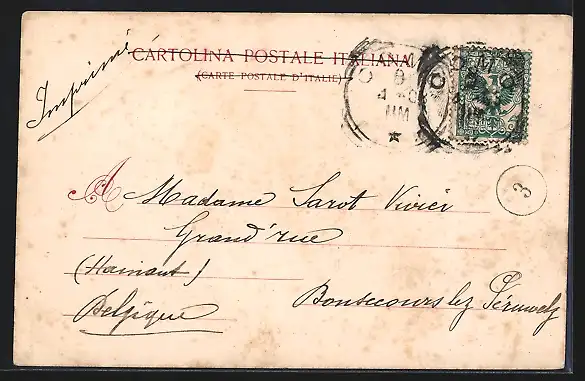 Imprimé
CARTOLINA POSTALE ITALIANA
(CARTE POSTALE D'ITALIE)
COMO
8
11M
3
A Madame Sarot Vivier
Grand'rue
(Hainaut)
Bonsecours lez Péruwelz
Belgique